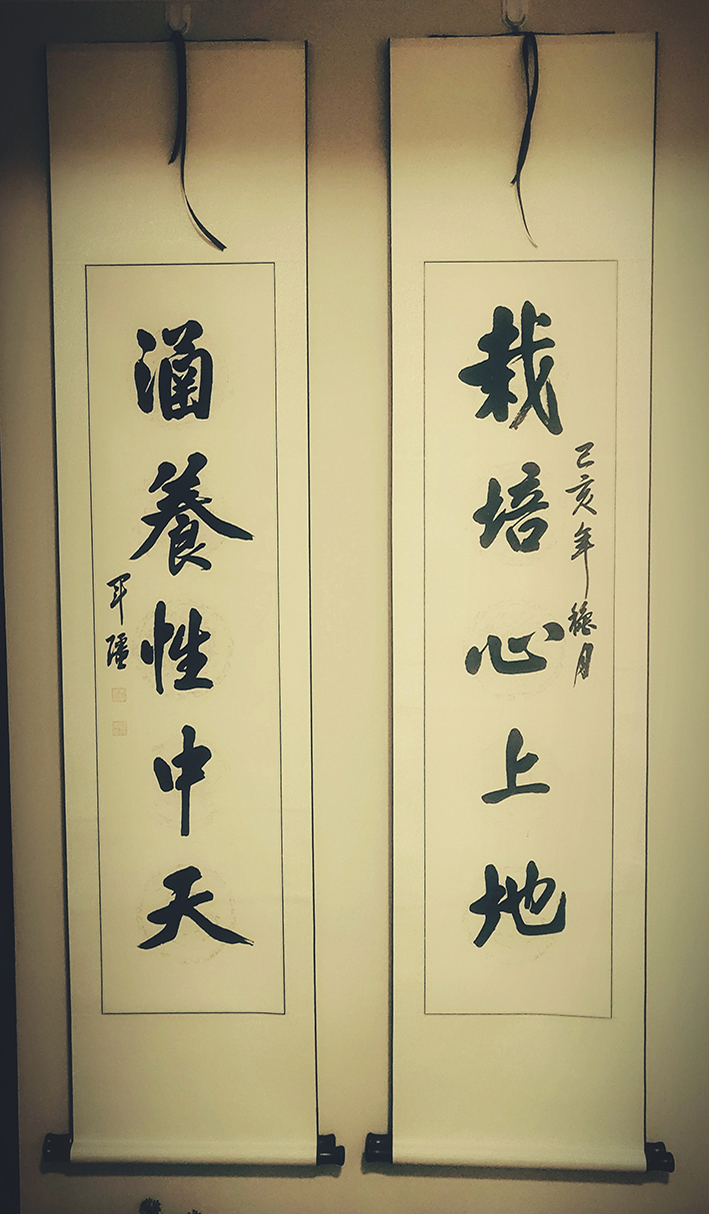 栽培心上地
己亥年穐月
涵養性中天